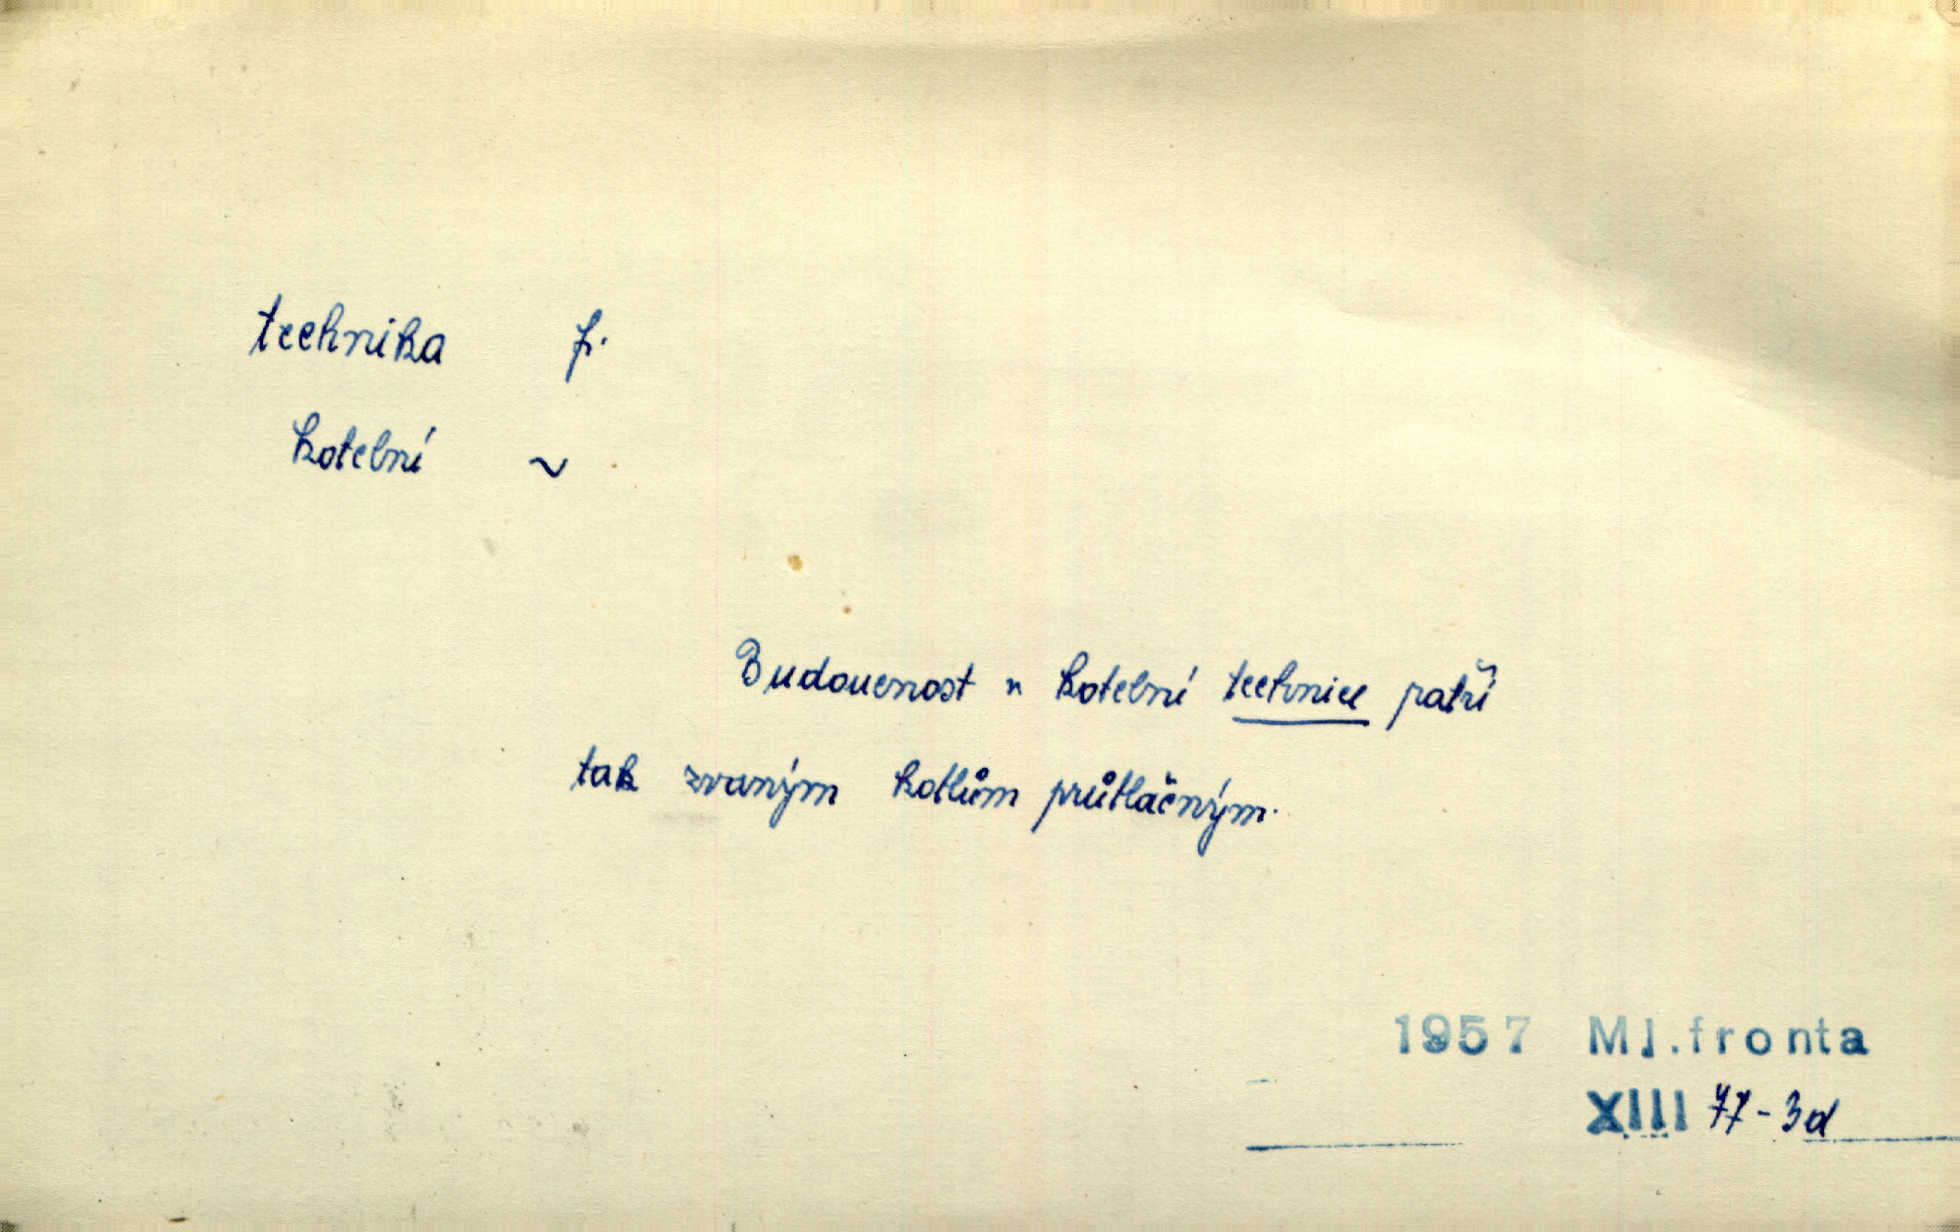 technika f.
kotelní ~
Budoucnost v kotelní technice patří
tak zvaným kotlům průtlačným.
1957 Ml.fronta
XIII 77-3d